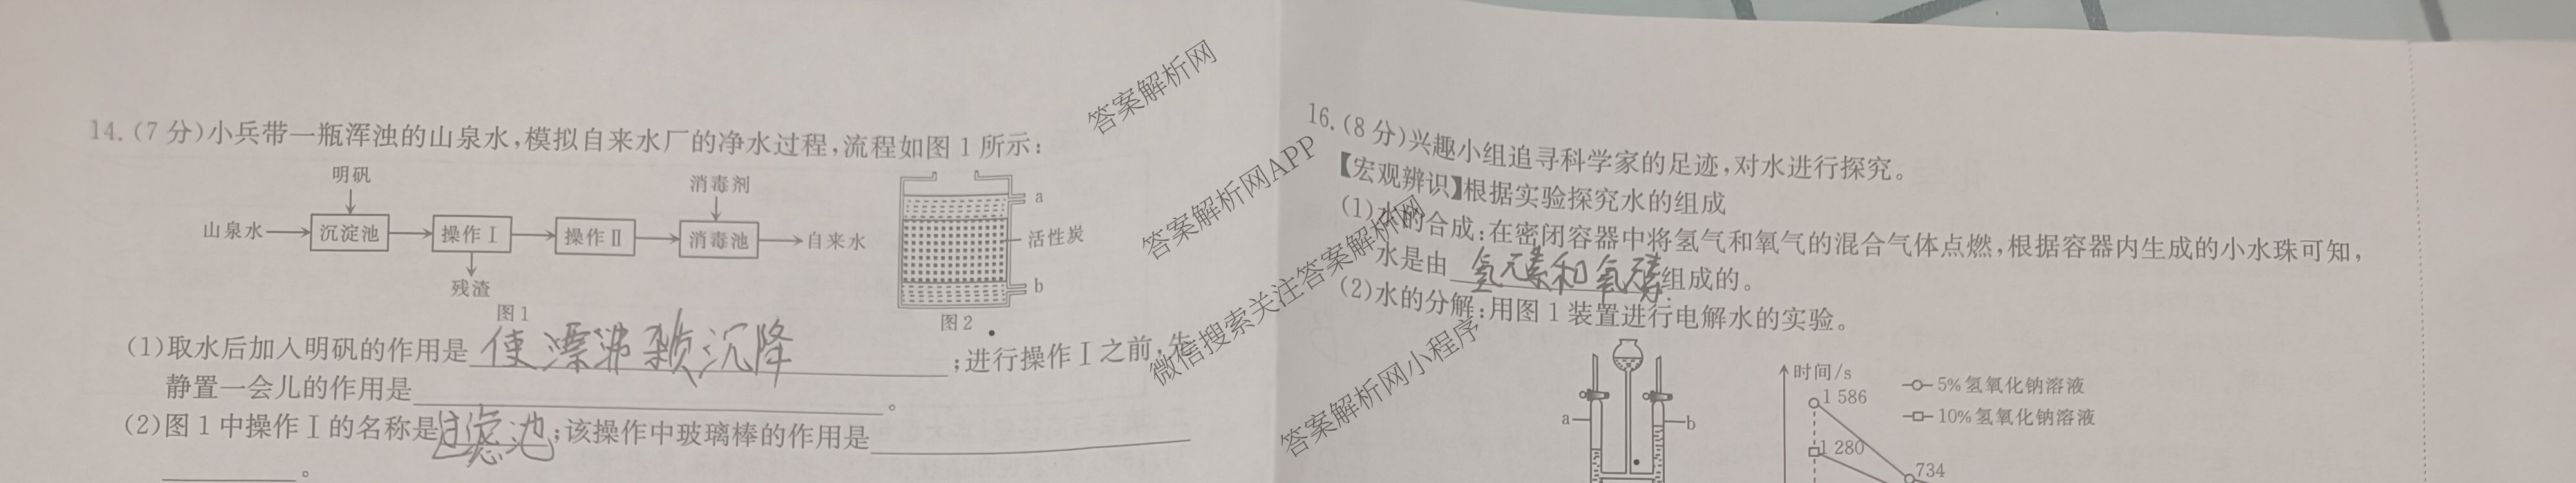 14.(7分)小兵带一瓶浑浊的山泉水,模拟自来水厂的净水过程,流程如图1所示:
明矾
消毒剂
山泉水 沉淀池 操作Ⅰ 操作Ⅱ 消毒池 自来水
残渣
图1
a
活性炭
b
图2
(1)取水后加入明矾的作用是 使漂沸杂质沉降 ;进行操作Ⅰ之前,先
静置一会儿的作用是 。
(2)图1中操作Ⅰ的名称是 过滤池 ;该操作中玻璃棒的作用是
。
16.(8分)兴趣小组追寻科学家的足迹,对水进行探究。
【宏观辨识】根据实验探究水的组成
(1)水的合成:在密闭容器中将氢气和氧气的混合气体点燃,根据容器内生成的小水珠可知,
水是由 氢元素和氧元素 组成的。
(2)水的分解:用图1装置进行电解水的实验。
a
b
时间/s
5%氢氧化钠溶液
10%氢氧化钠溶液
1 586
1 280
734
答案解析网
答案解析网APP
微信搜索关注答案解析网
答案解析网小程序